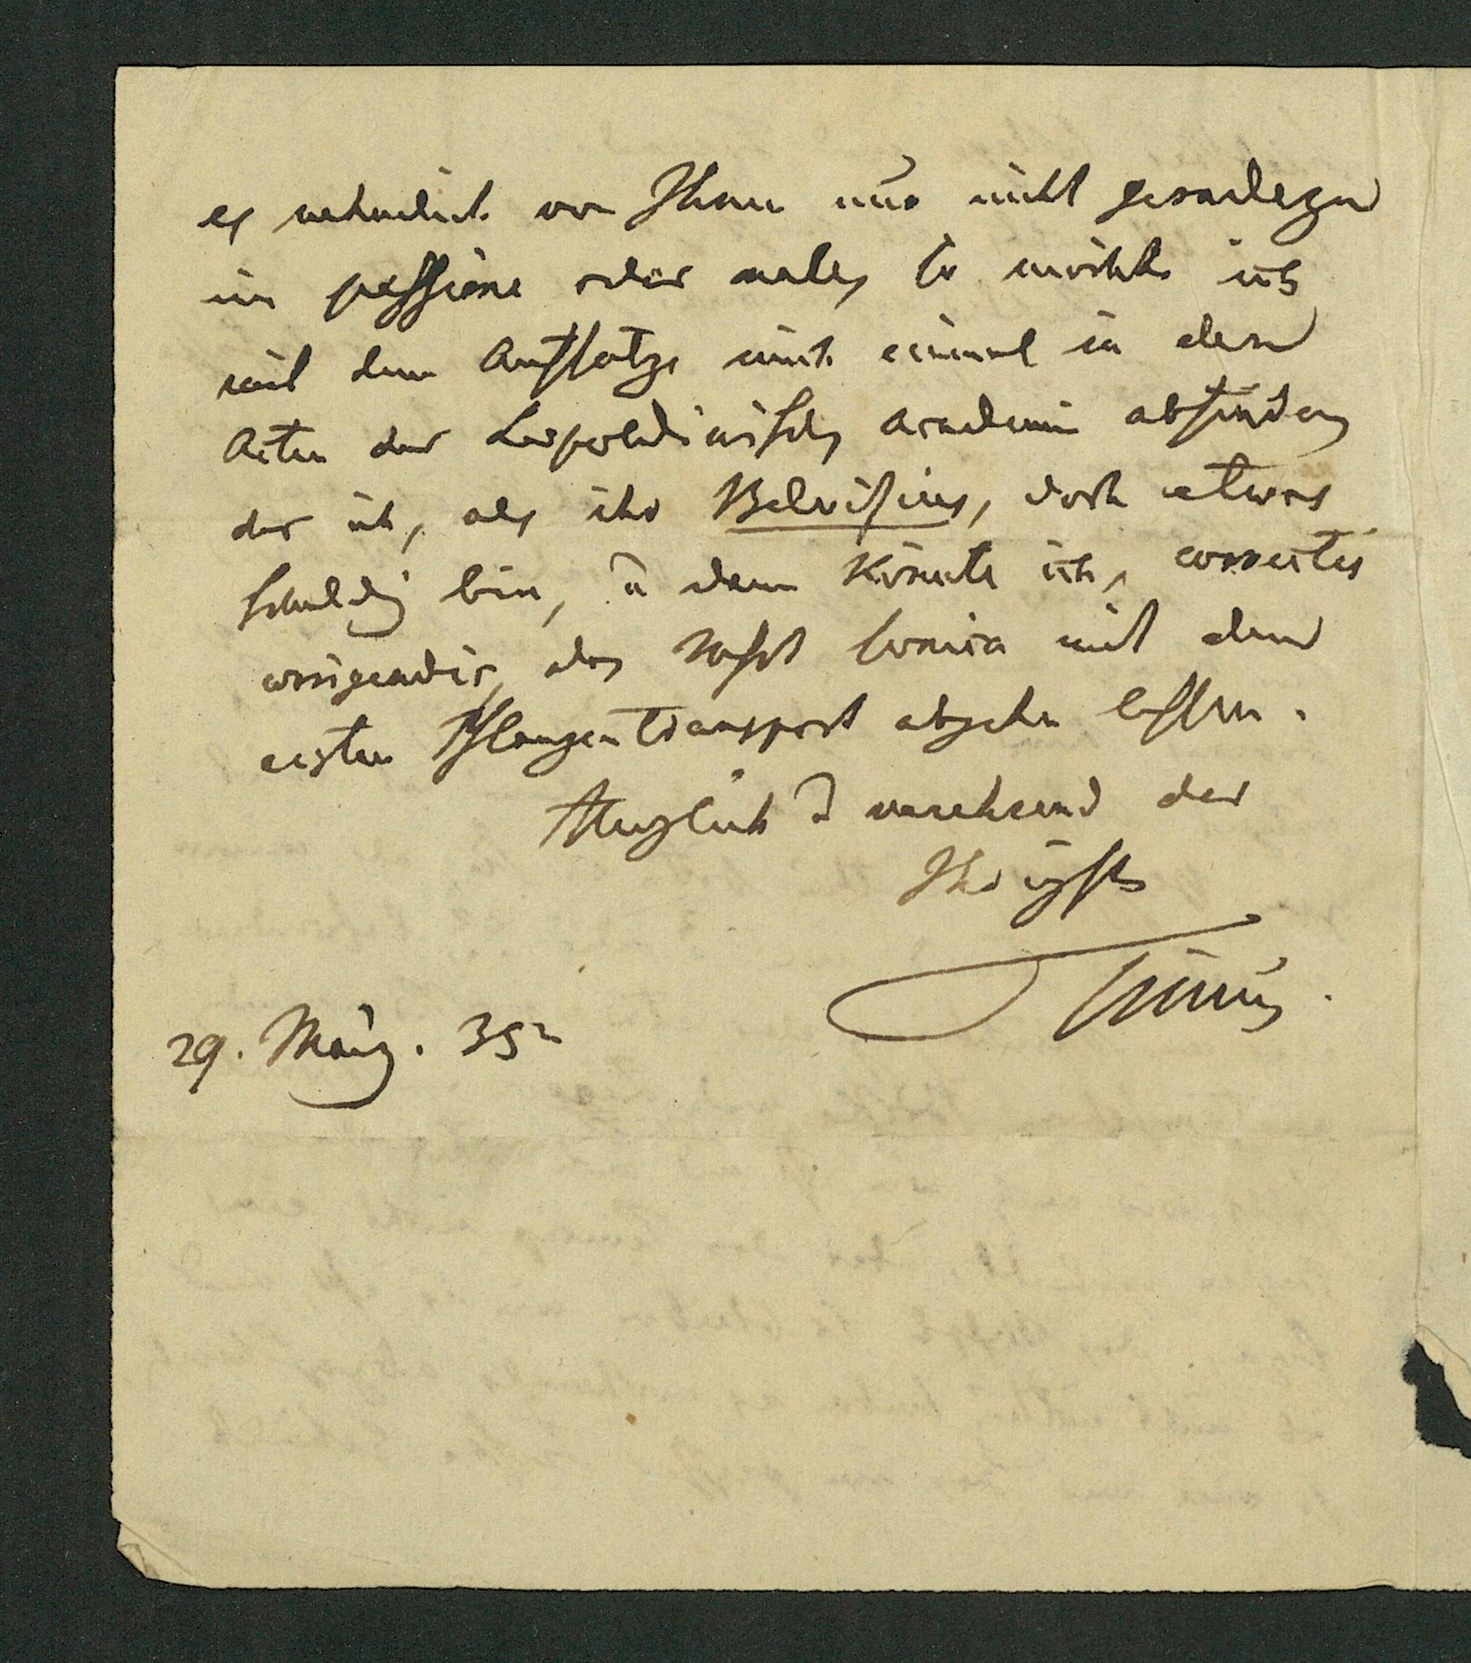 es nehmlich von Ihnen nur nicht geradezu
im pessime oder male, so möchte ich
mit dem Aufsatze mich einmal in den
Acten der Leopoldinischen Academie abfinden
der ich, als ihr Belvisius, doch etwas
schuldig bin, u dann könnte ich, correctis
corrigendis, das mit dem
ersten Pflanzentransport abgehen lassen.
Herzlich u verehrend der
Ihrigste
Trinius.
29. März. 35